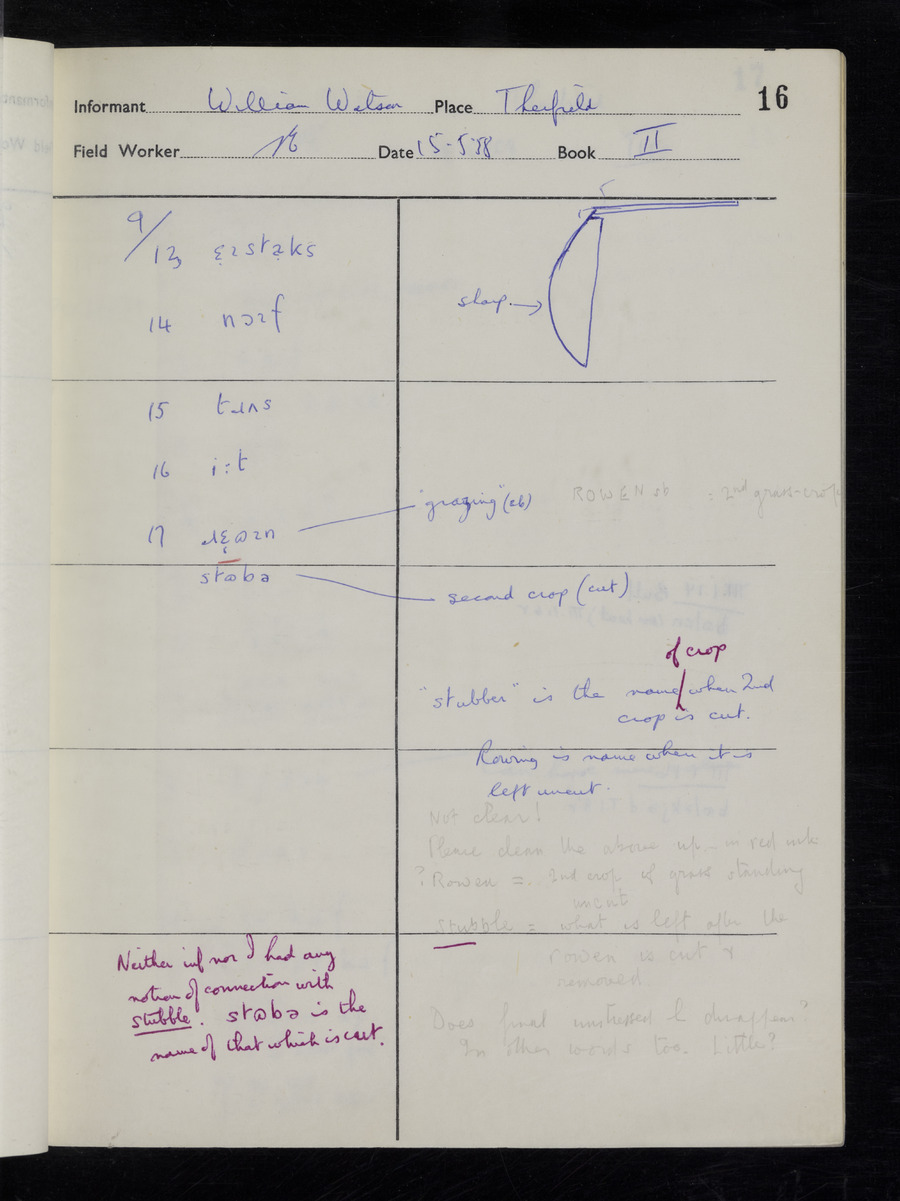 16
Informant William Watson Place Therfield
Field Worker Date 15-5-58 Book II
9/13
sharp →
14
15
16 i:t
17
"grazing" (sb) ROWEN sb = 2nd grass-crop
second crop (cut)
of crop
"stubber" is the name when 2nd
crop is cut.
Rowing is name when it is
left uncut.
Not clear!
Please clean the above up – in red ink
? Rowen = 2nd crop of grass standing
uncut
stubble = what is left after the
rowen is cut &
removed.
Neither inf nor I had any
notion of connection with
stubble. is the
name of that which is cut.
Does final unstressed l disappear?
In other words too. Little?